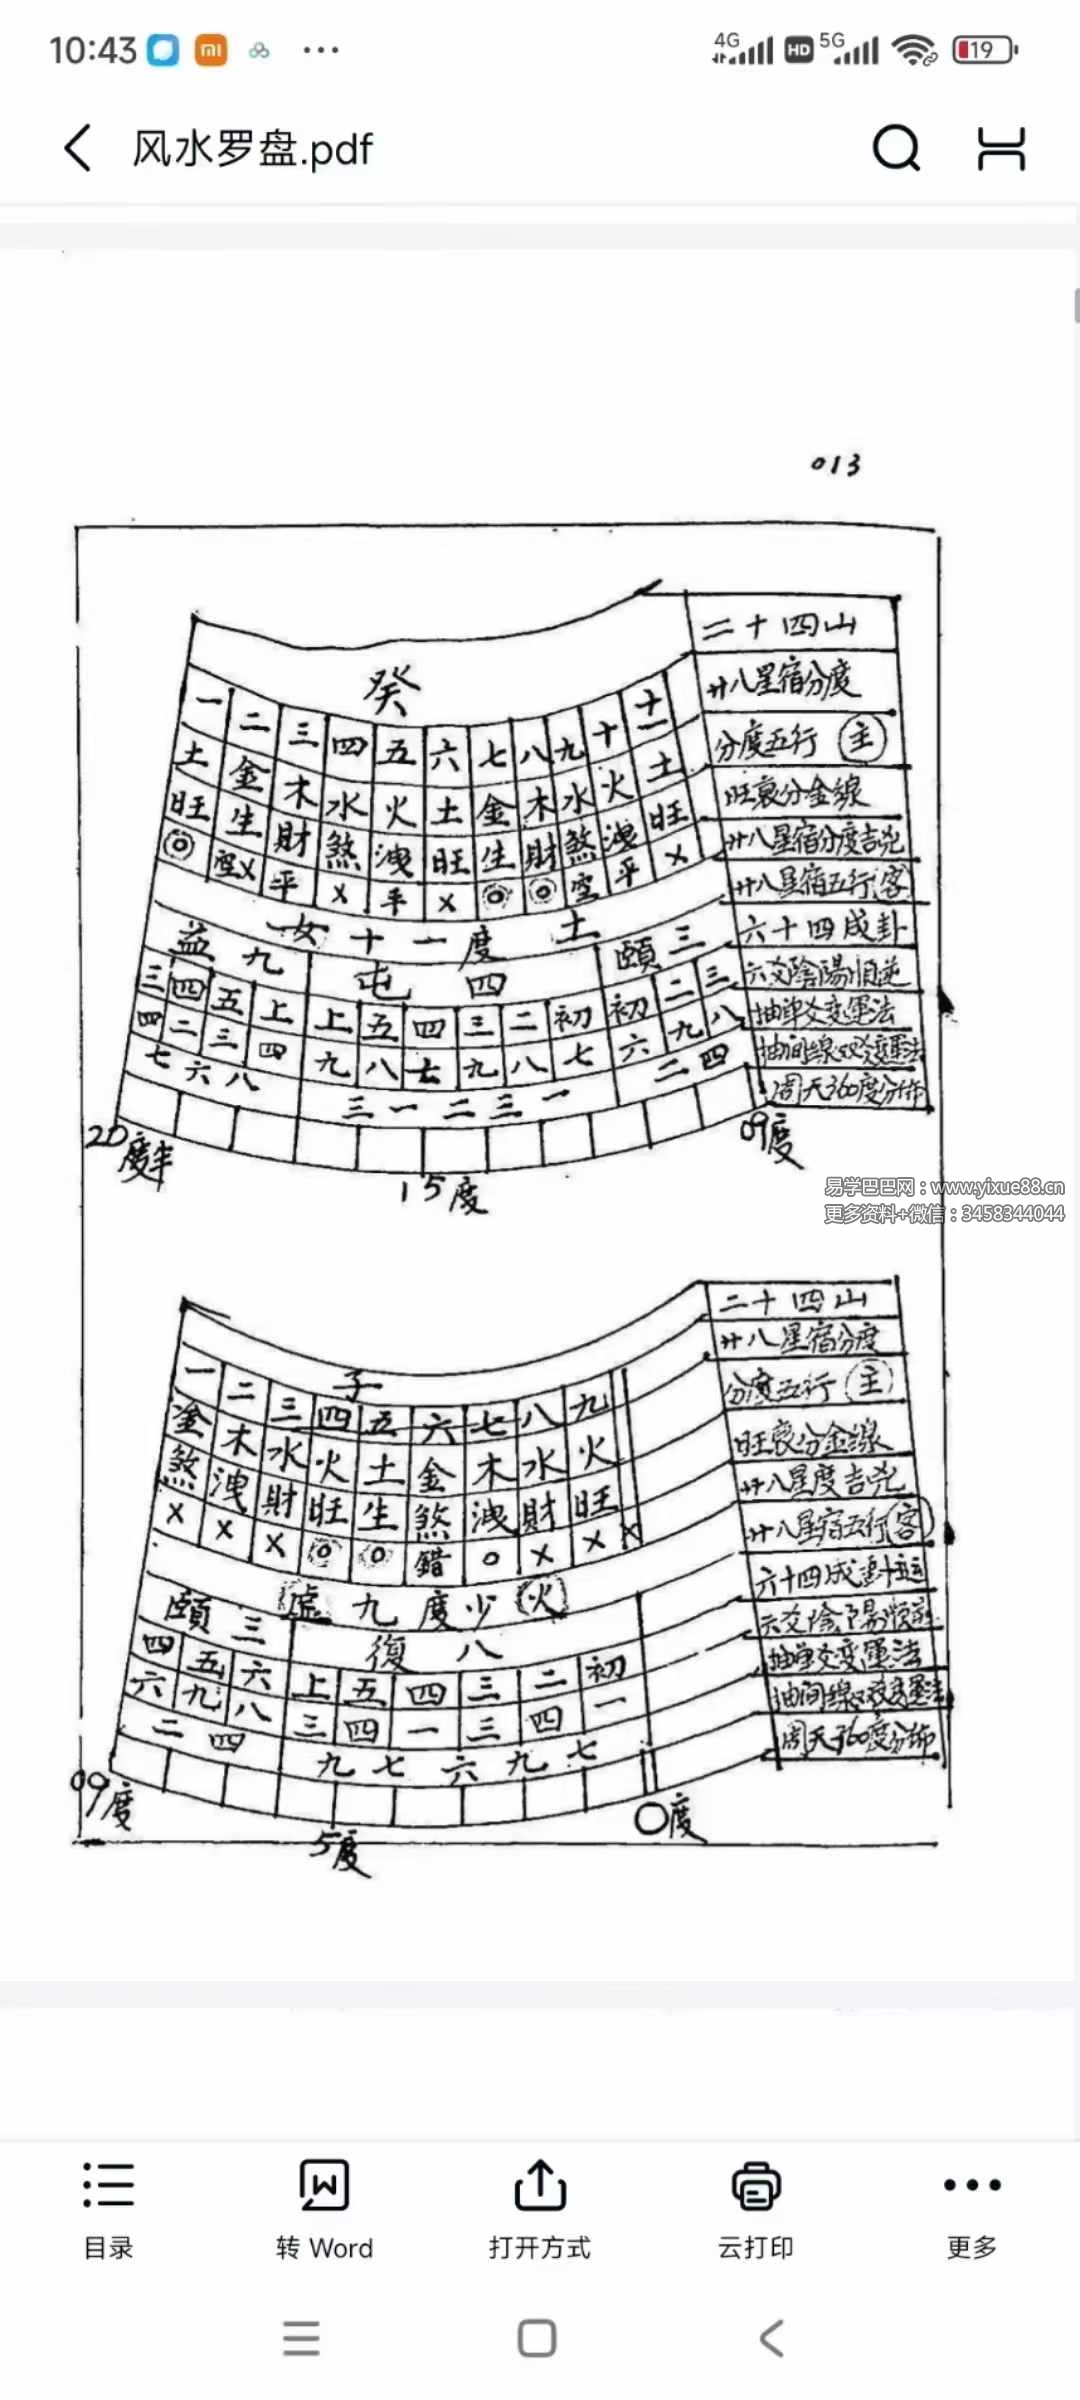 10:43
4G HD 5G 19
风水罗盘.pdf
013
二十四山
廿八星宿分度
分度五行 主
旺衰分金線
廿八星宿分度吉兇
廿八星宿五行 客
六十四成卦
六爻陰陽順逆
抽单爻变運法
抽间缐双爻变運法
周天360度分佈
癸
一 二 三 四 五 六 七 八 九 十 十一
土 金 木 水 火 土 金 木 水 火 土
旺 生 財 煞 洩 旺 生 財 煞 洩 旺
◎ 空X 平 X 平 X ◎ ◎ 空 平 X
女十一度 土
益九 屯四 頤三
三 四 五 上 上 五 四 三 二 初 初 二 三
四 二 三 四 九 八 七 九 八 七 六 九 八
七 六 八 三 一 二 三 一 二 四
20度半 15度 09度
易学巴巴网：www.yixue88.cn
更多资料+微信：3458344044
二十四山
廿八星宿分度
分度五行 主
旺衰分金線
廿八星度吉兇
廿八星宿五行 客
六十四成卦运
六爻陰陽順逆
抽单爻变運法
抽间缐双爻变運法
周天360度分佈
子
一 二 三 四 五 六 七 八 九
金 木 水 火 土 金 木 水 火
煞 洩 財 旺 生 煞 洩 財 旺
X X X ◎ ◎ 錯 ○ X X X
虛九度少 火
頤三 復八
四 五 六 上 五 四 三 二 初
六 九 八 三 四 一 三 四 一
二 四 九 七 六 九 七
09度 5度 0度
目录 转 Word 打开方式 云打印 更多